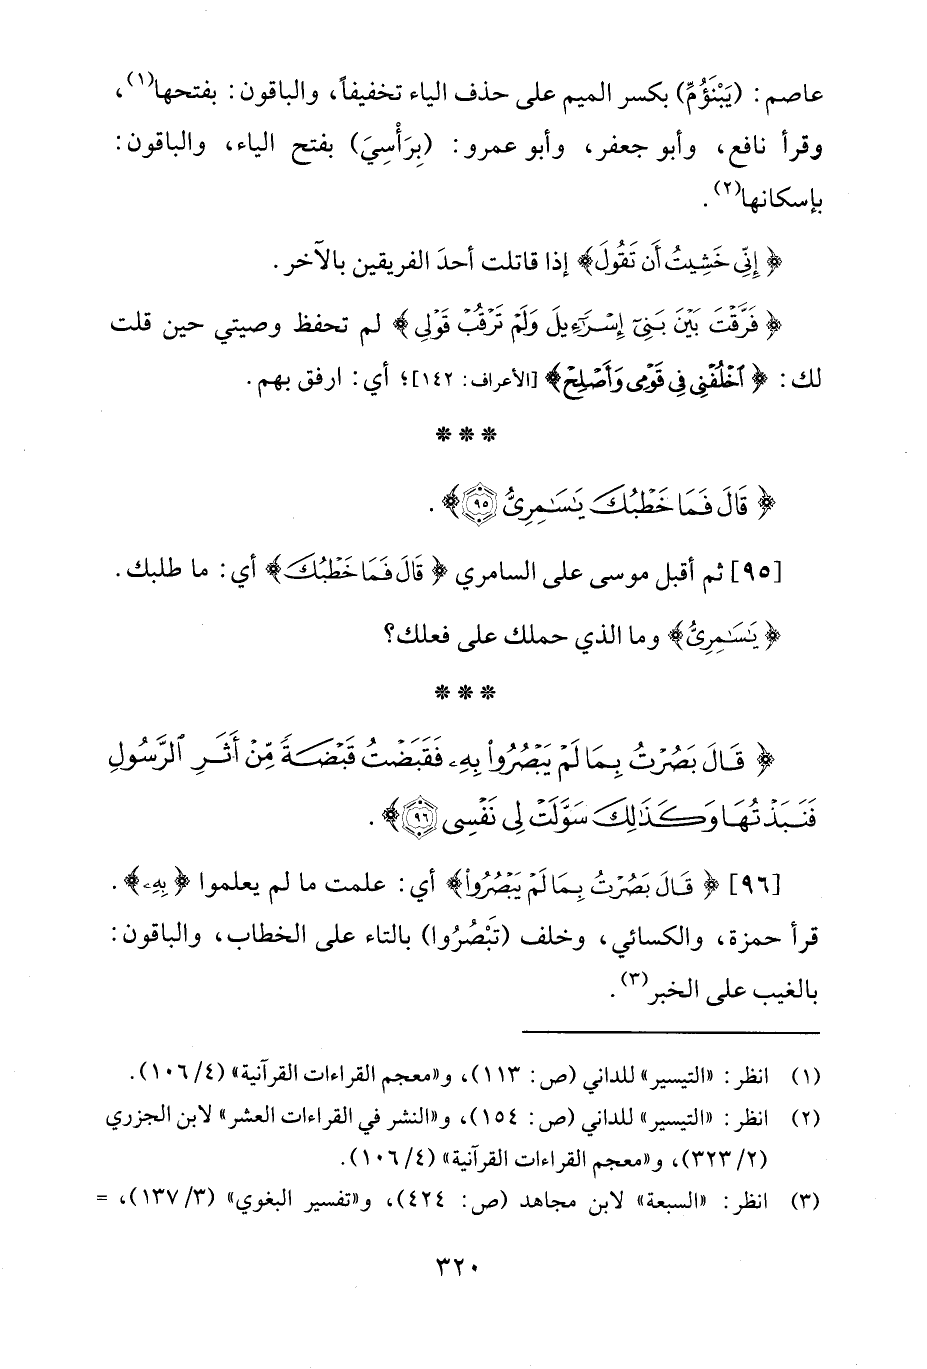 عاصم: (يَبْنَؤُمِّ) بكسر الميم على حذف الياء تخفيفاً، والباقون: بفتحها(١)،
وقرأ نافع، وأبو جعفر، وأبو عمرو: (بِرَأْسِيَ) بفتح الياء، والباقون:
بإسكانها(٢).
﴿إِنِّي خَشِيتُ أَن تَقُولَ﴾ إذا قاتلت أحدَ الفريقين بالآخر.
﴿فَرَّقْتَ بَيْنَ بَنِيٓ إِسْرَٰٓءِيلَ وَلَمْ تَرْقُبْ قَوْلِي﴾ لم تحفظ وصيتي حين قلت
لك: ﴿ٱخْلُفْنِي فِي قَوْمِي وَأَصْلِحْ﴾ [الأعراف: ١٤٢]؛ أي: ارفق بهم.
* * *
﴿قَالَ فَمَا خَطْبُكَ يَٰسَٰمِرِيُّ ٩٥﴾.
[٩٥] ثم أقبل موسى على السامري ﴿قَالَ فَمَا خَطْبُكَ﴾ أي: ما طلبك.
﴿يَٰسَٰمِرِيُّ﴾ وما الذي حملك على فعلك؟
* * *
﴿قَالَ بَصُرْتُ بِمَا لَمْ يَبْصُرُوا۟ بِهِۦ فَقَبَضْتُ قَبْضَةً مِّنْ أَثَرِ ٱلرَّسُولِ
فَنَبَذْتُهَا وَكَذَٰلِكَ سَوَّلَتْ لِي نَفْسِي ٩٦﴾.
[٩٦] ﴿قَالَ بَصُرْتُ بِمَا لَمْ يَبْصُرُوا۟﴾ أي: علمت ما لم يعلموا ﴿بِهِۦ﴾.
قرأ حمزة، والكسائي، وخلف (تَبْصُرُوا) بالتاء على الخطاب، والباقون:
بالغيب على الخبر(٣).
(١) انظر: «التيسير» للداني (ص: ١١٣)، و«معجم القراءات القرآنية» (٤/ ١٠٦).
(٢) انظر: «التيسير» للداني (ص: ١٥٤)، و«النشر في القراءات العشر» لابن الجزري
(٢/ ٣٢٣)، و«معجم القراءات القرآنية» (٤/ ١٠٦).
(٣) انظر: «السبعة» لابن مجاهد (ص: ٤٢٤)، و«تفسير البغوي» (٣/ ١٣٧)، =
٣٢٠